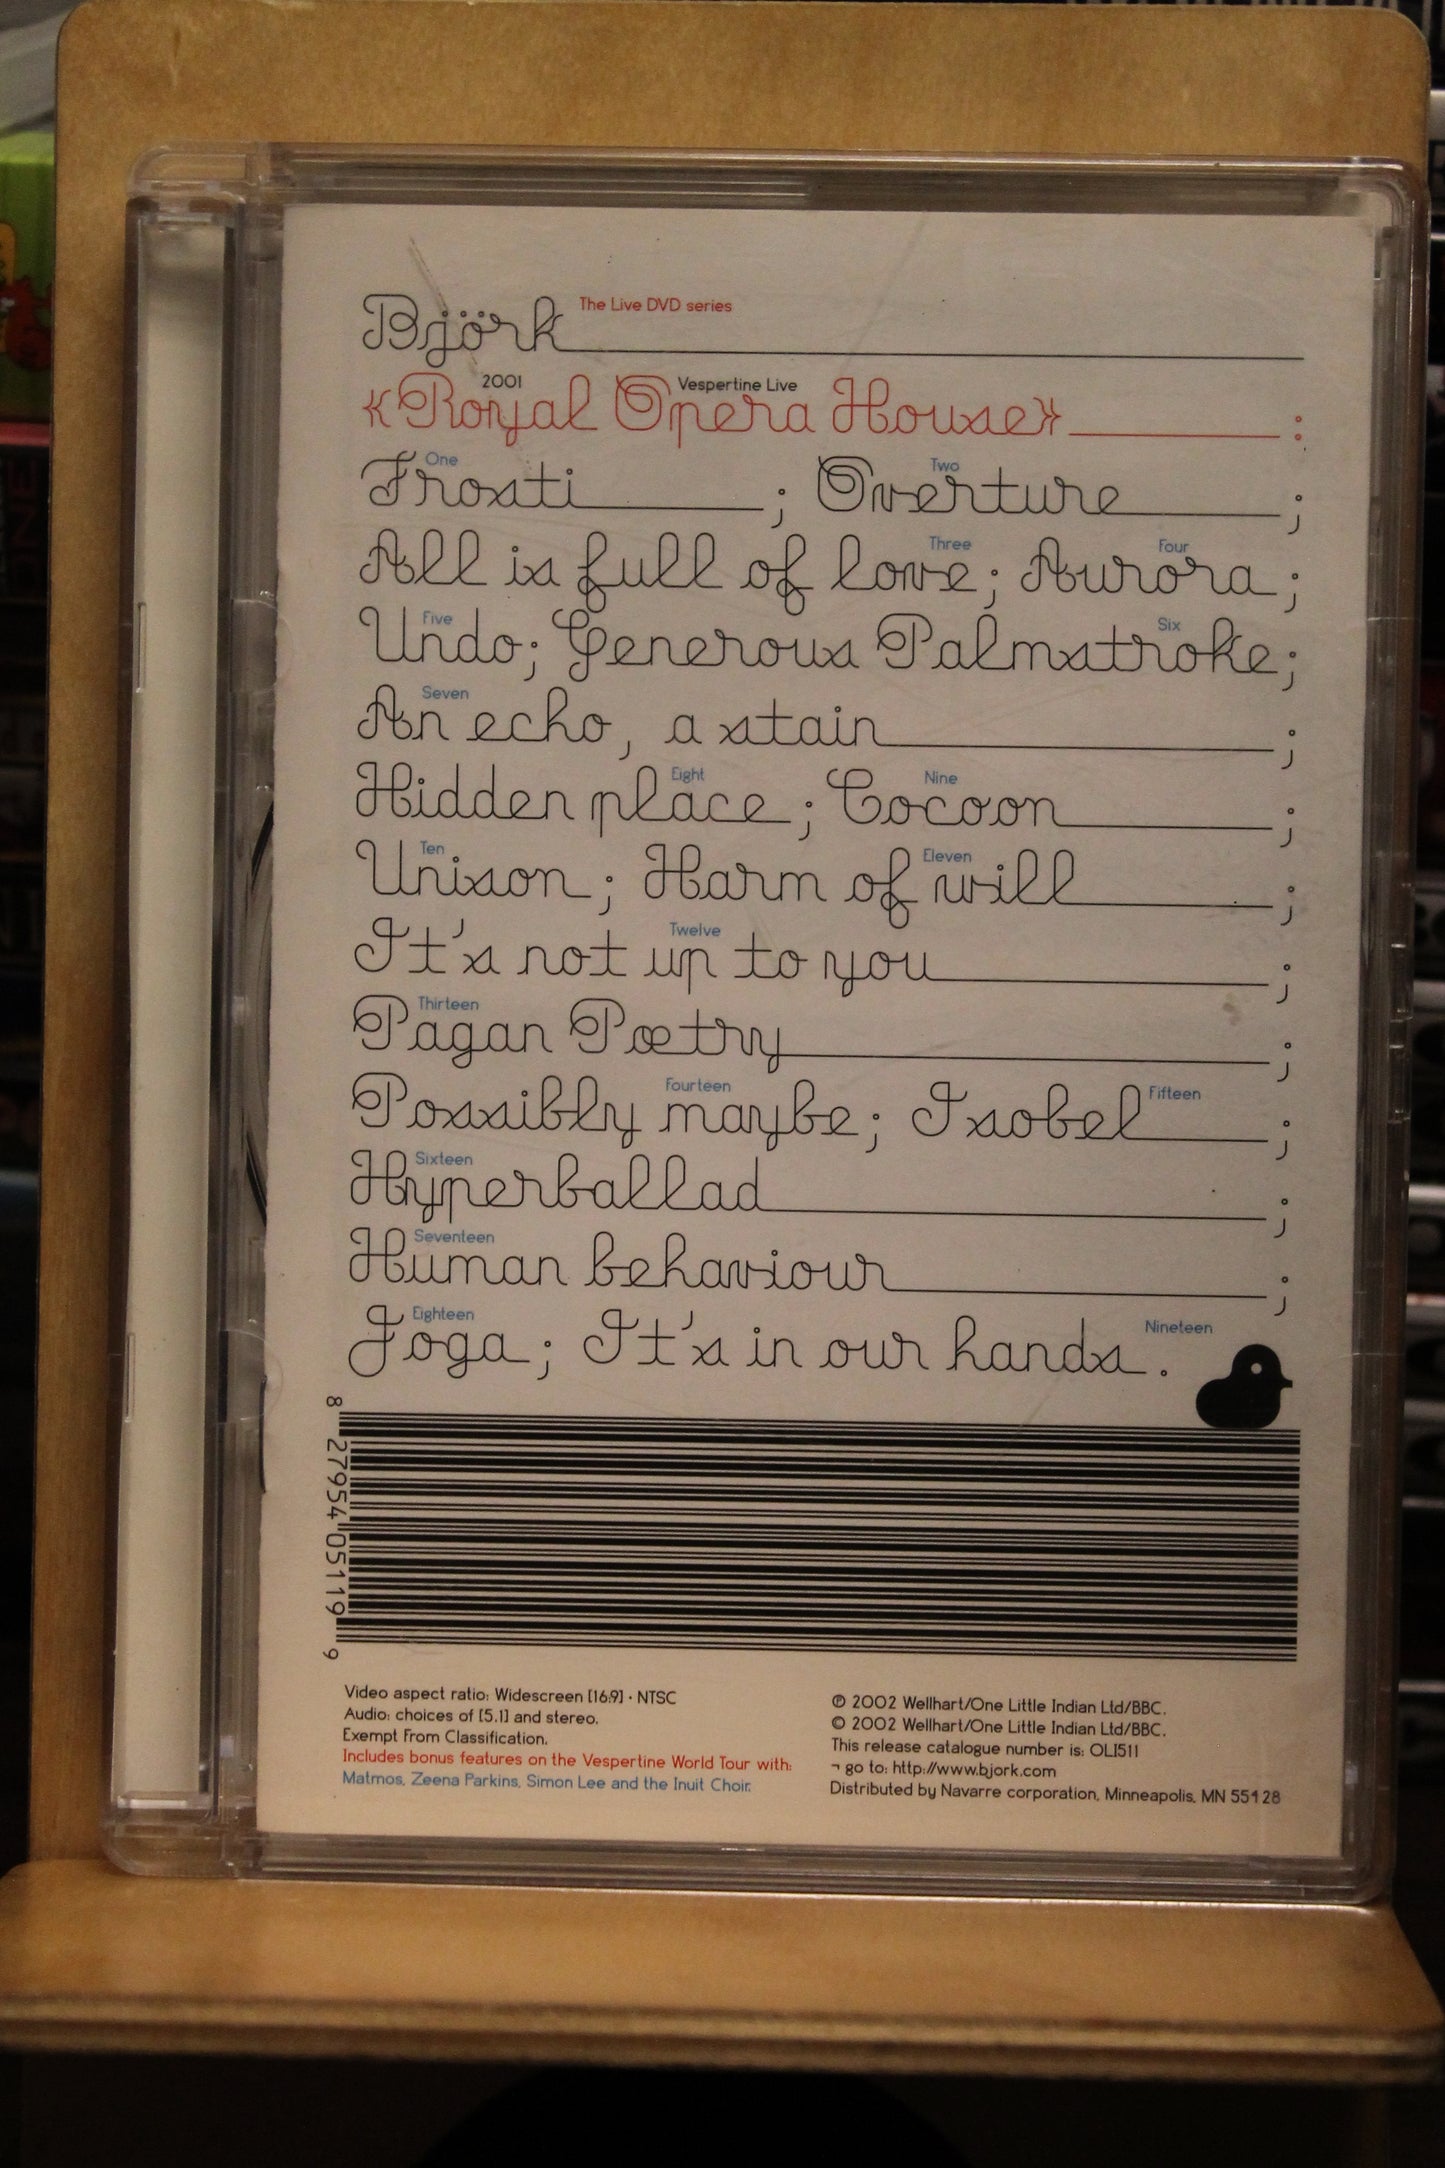 The Live DVD series
Björk
2001 Vespertine Live
«Royal Opera House» :
One Two
Frosti ; Overture ;
Three Four
All is full of love; Aurora ;
Five Six
Undo; Generous Palmstroke;
Seven
An echo, a stain ;
Eight Nine
Hidden place ; Cocoon ;
Ten Eleven
Unison ; Harm of will ;
Twelve
It's not up to you ;
Thirteen
Pagan Pœtry ;
Fourteen Fifteen
Possibly maybe ; Isobel ;
Sixteen
Hyperballad ;
Seventeen
Human behaviour ;
Eighteen Nineteen
Joga ; It's in our hands .
8 27954 05119 9
Video aspect ratio: Widescreen [16:9] · NTSC
Audio: choices of [5.1] and stereo.
Exempt From Classification.
Includes bonus features on the Vespertine World Tour with:
Matmos, Zeena Parkins, Simon Lee and the Inuit Choir.
℗ 2002 Wellhart/One Little Indian Ltd/BBC.
© 2002 Wellhart/One Little Indian Ltd/BBC.
This release catalogue number is: OLI511
¬ go to: http://www.bjork.com
Distributed by Navarre corporation, Minneapolis, MN 55428